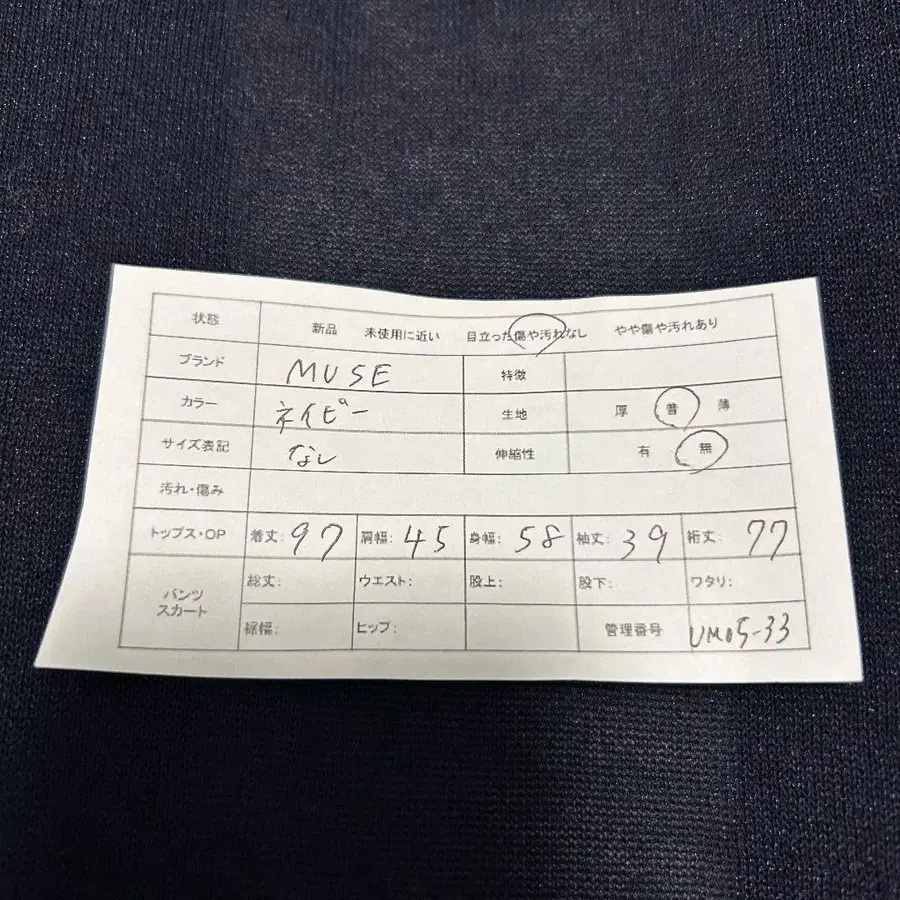 状態 新品 未使用に近い 目立った傷や汚れなし やや傷や汚れあり
ブランド MUSE 特徴
カラー ネイビー 生地 厚 普 薄
サイズ表記 なし 伸縮性 有 無
汚れ・傷み
トップス・OP 着丈: 97 肩幅: 45 身幅: 58 袖丈: 39 裄丈: 77
パンツ スカート 総丈: ウエスト: 股上: 股下: ワタリ:
裾幅: ヒップ: 管理番号 UM05-33